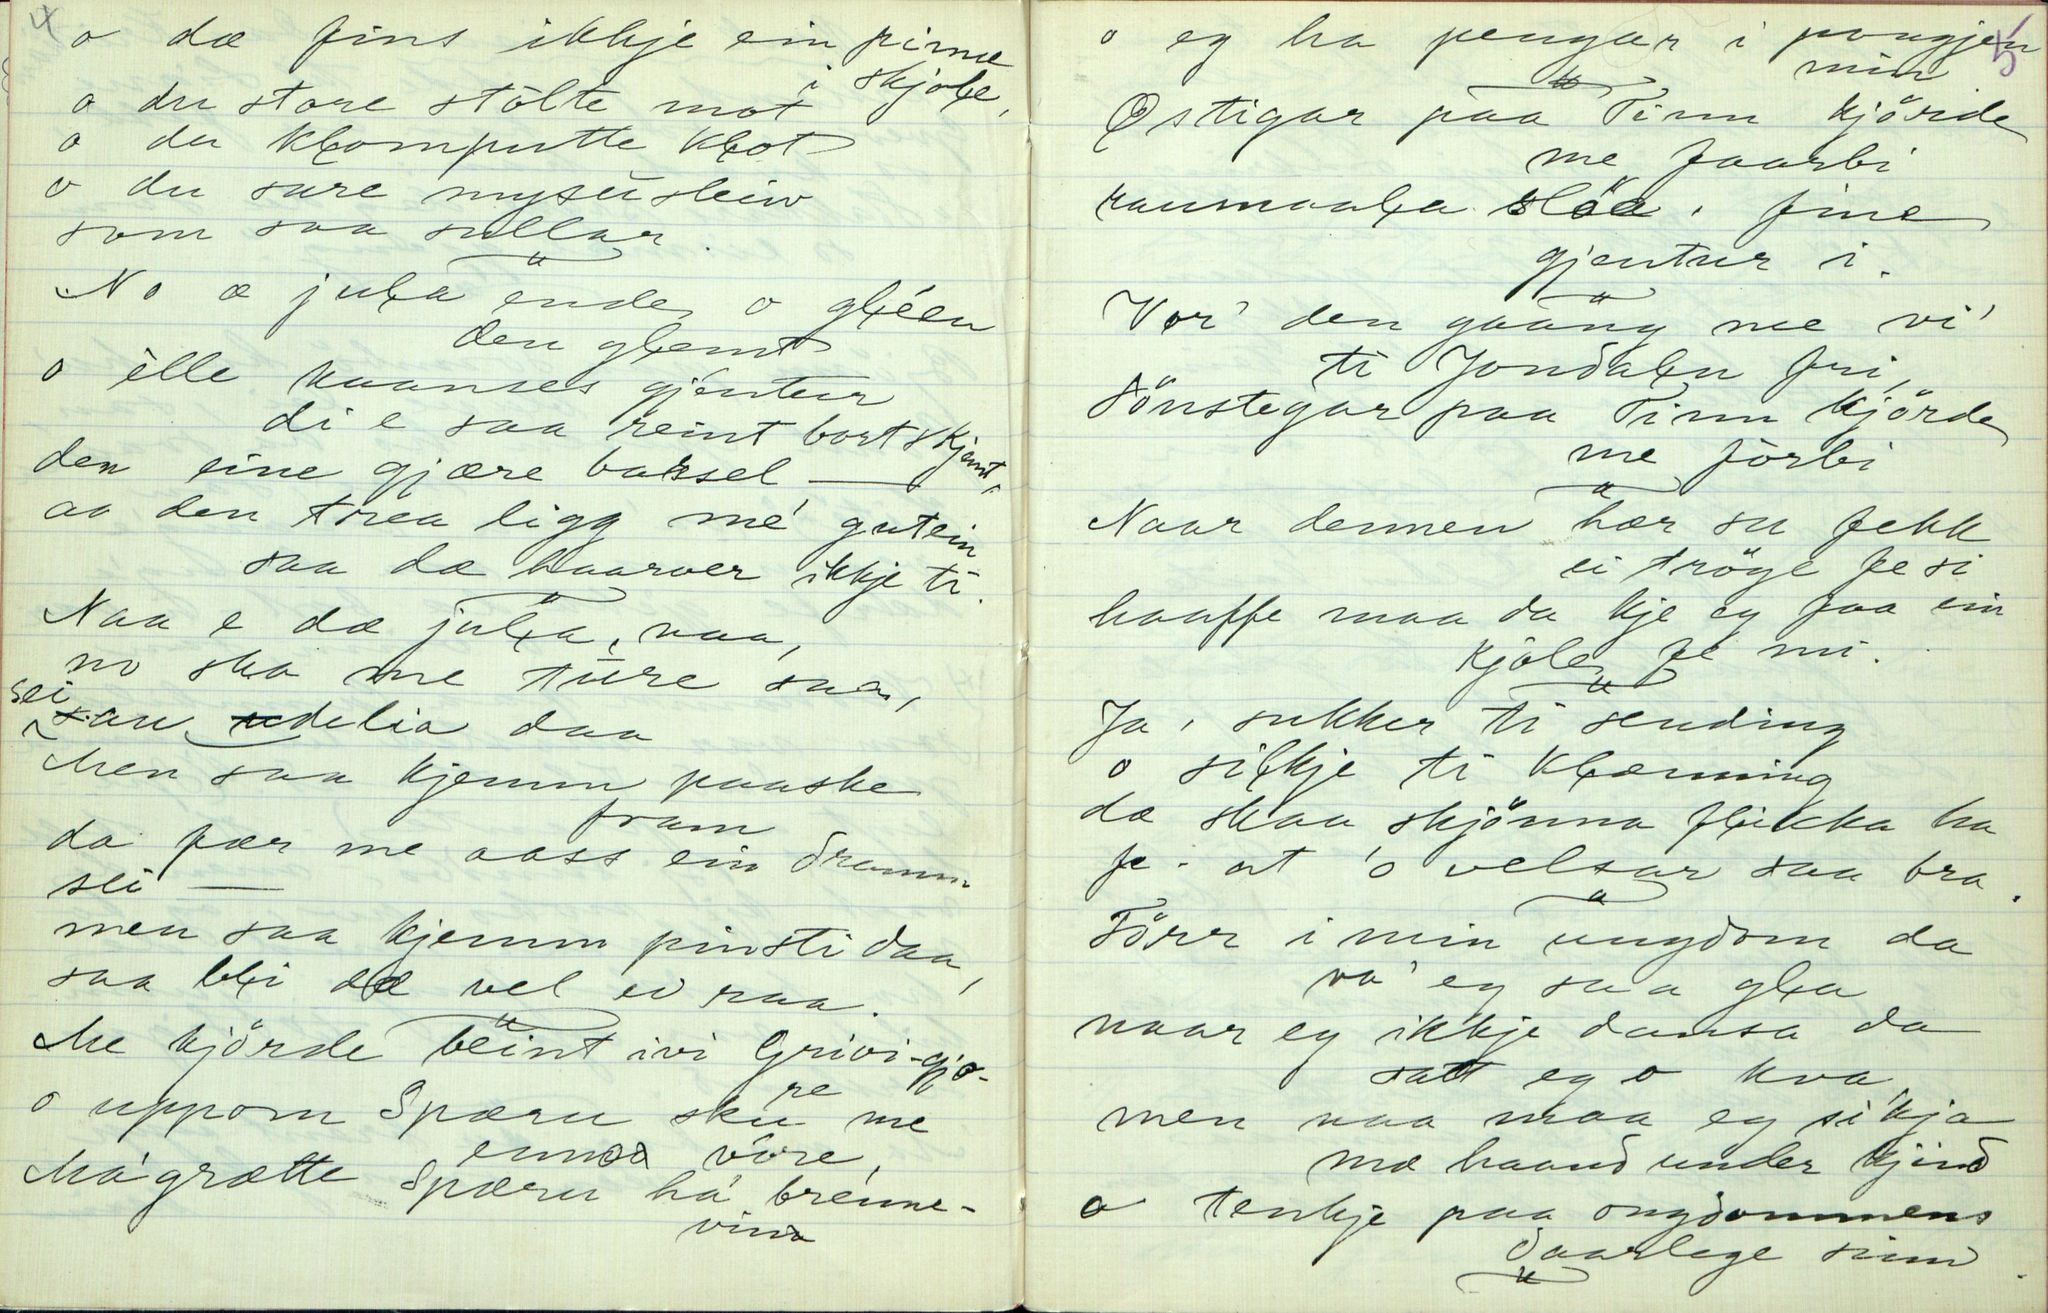 4
o dæ fins ikkje ein pinne
i skjołe,
o du store stölte mot
o du kłomputte kłot
o du sure mysusleiv
som saa sullar.
No æ juła ende, o głéen
den głemt
o élle kaanses gjentur
di e saa reint bortskjemt,
den eine gjære barsel —
aa den trea ligg mé gutein
saa dæ haarver ikkje ti.
Naa e dæ juła, naa,
no ska me ture saa,
sei
delia daa
Men saa kjemm paaske
fram
da fær me aass ein dramm
sei —
men saa kjemm pinsti daa,
saa błi dæ vel ei raa.
Me kjörde beint ivi Grivi-gjo-
re
o uppom Spæru sku me
enno vöre,
Mágrætte Spæru há brénne-
vina
5
o eg ha pengar i pongjen
min
Östigar paa Tinn kjörde
me faarbi
raumaała slöa, fine
gjentur i.
Vor' den gaang me vi'
ti Jondałn fri,
Sönstegar paa Tinn kjörde
me förbi
Naar dennen hær su fekk
ei tröye fe si
haaffe maa da kje eg faa ein
kjole fe mi.
Ja, sukker ti sending
o siłkje ti kłænning
dæ skaa skjönna flikka ha
fe. at 'o velsar saa bra.
Förr i min ungdom da
va' eg saa gła
naar eg ikkje dansa da
satt eg o kva
men naa maa eg si'kja
mæ haand under kjind
o tenkje paa ongdommens
daarlege sinn.